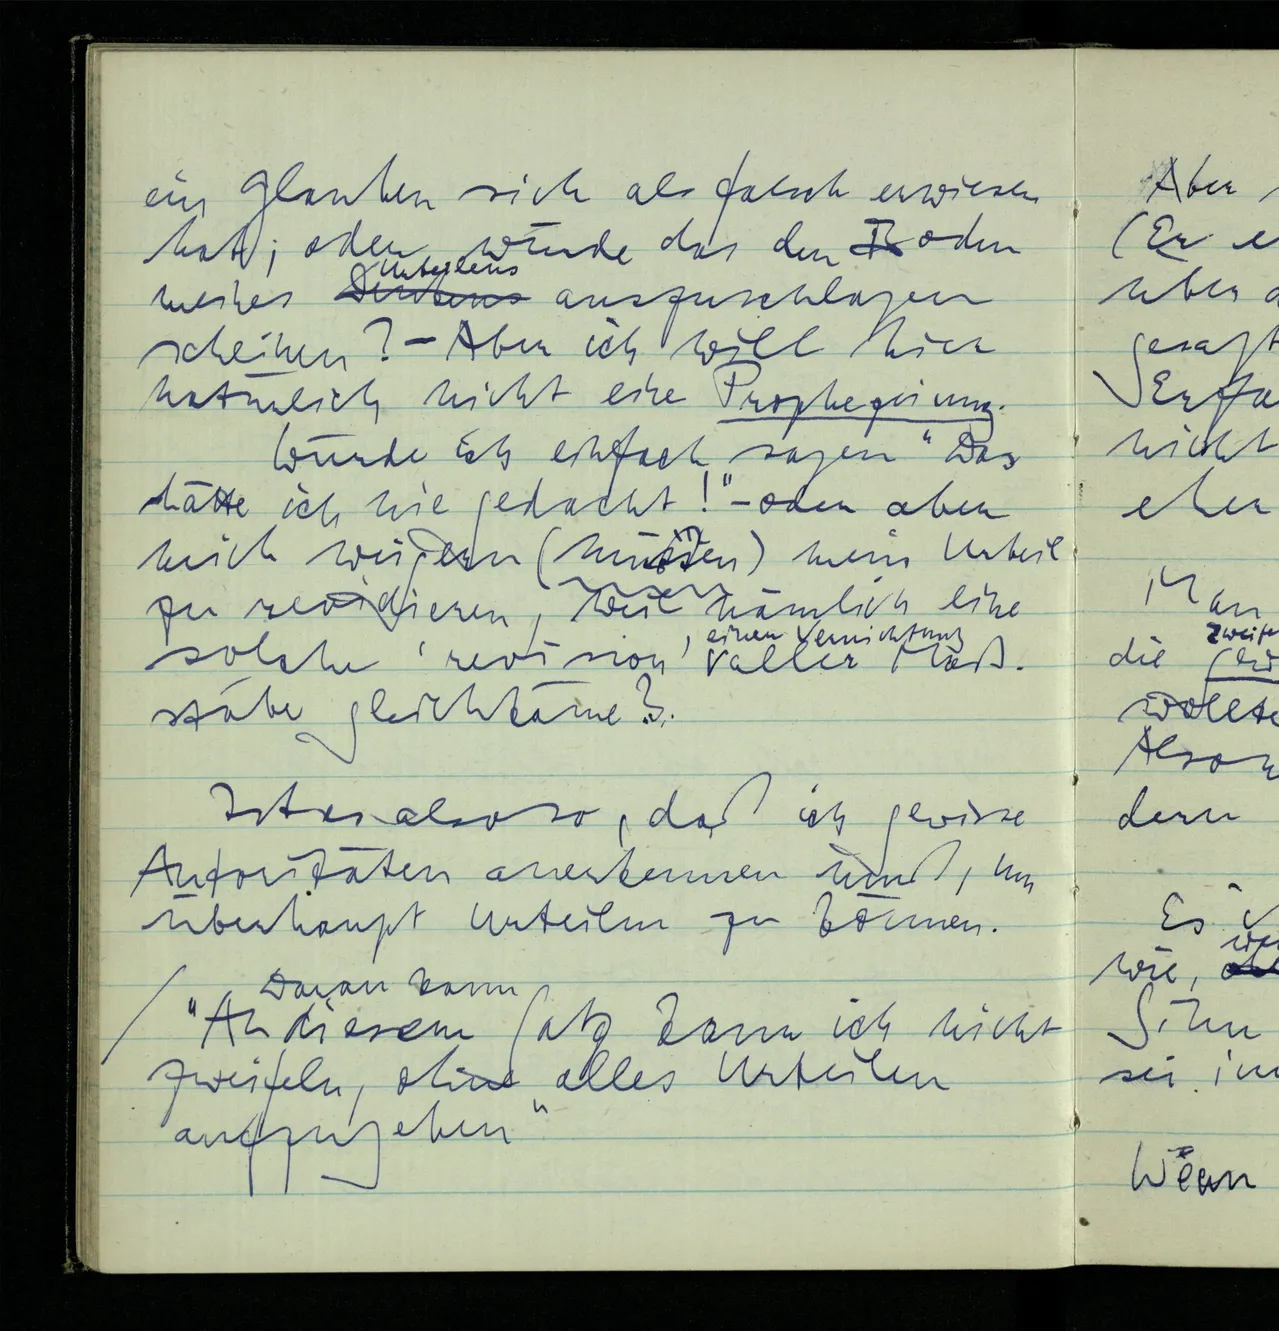 ein Glauben sich als falsch erwiesen
hat; oder würde das den Boden
Urteilens
meines Denkens auszuschlagen
scheinen? – Aber ich will hier
natürlich nicht eine Prophezeiung.
Würde ich einfach sagen "Das
hätte ich nie gedacht!" – oder aber
mich weigern (müssen) mein Urteil
zu revidieren, weil nämlich eine
solche 'revision', einer Vernichtung
aller Maß-
stäbe gleichkäme?.
Ist es also so, daß ich gewisse
Autoritäten anerkennen muß, um
überhaupt Urteilen zu können.
Daran kann
"An diesem Satz kann ich nicht
zweifeln, ohne alles Urteilen
aufzugeben"
Aber
(Er
über
gesagt
nicht
eher
Man
die
wollte
dern
Es
wie,
Sinn
sei
Wenn